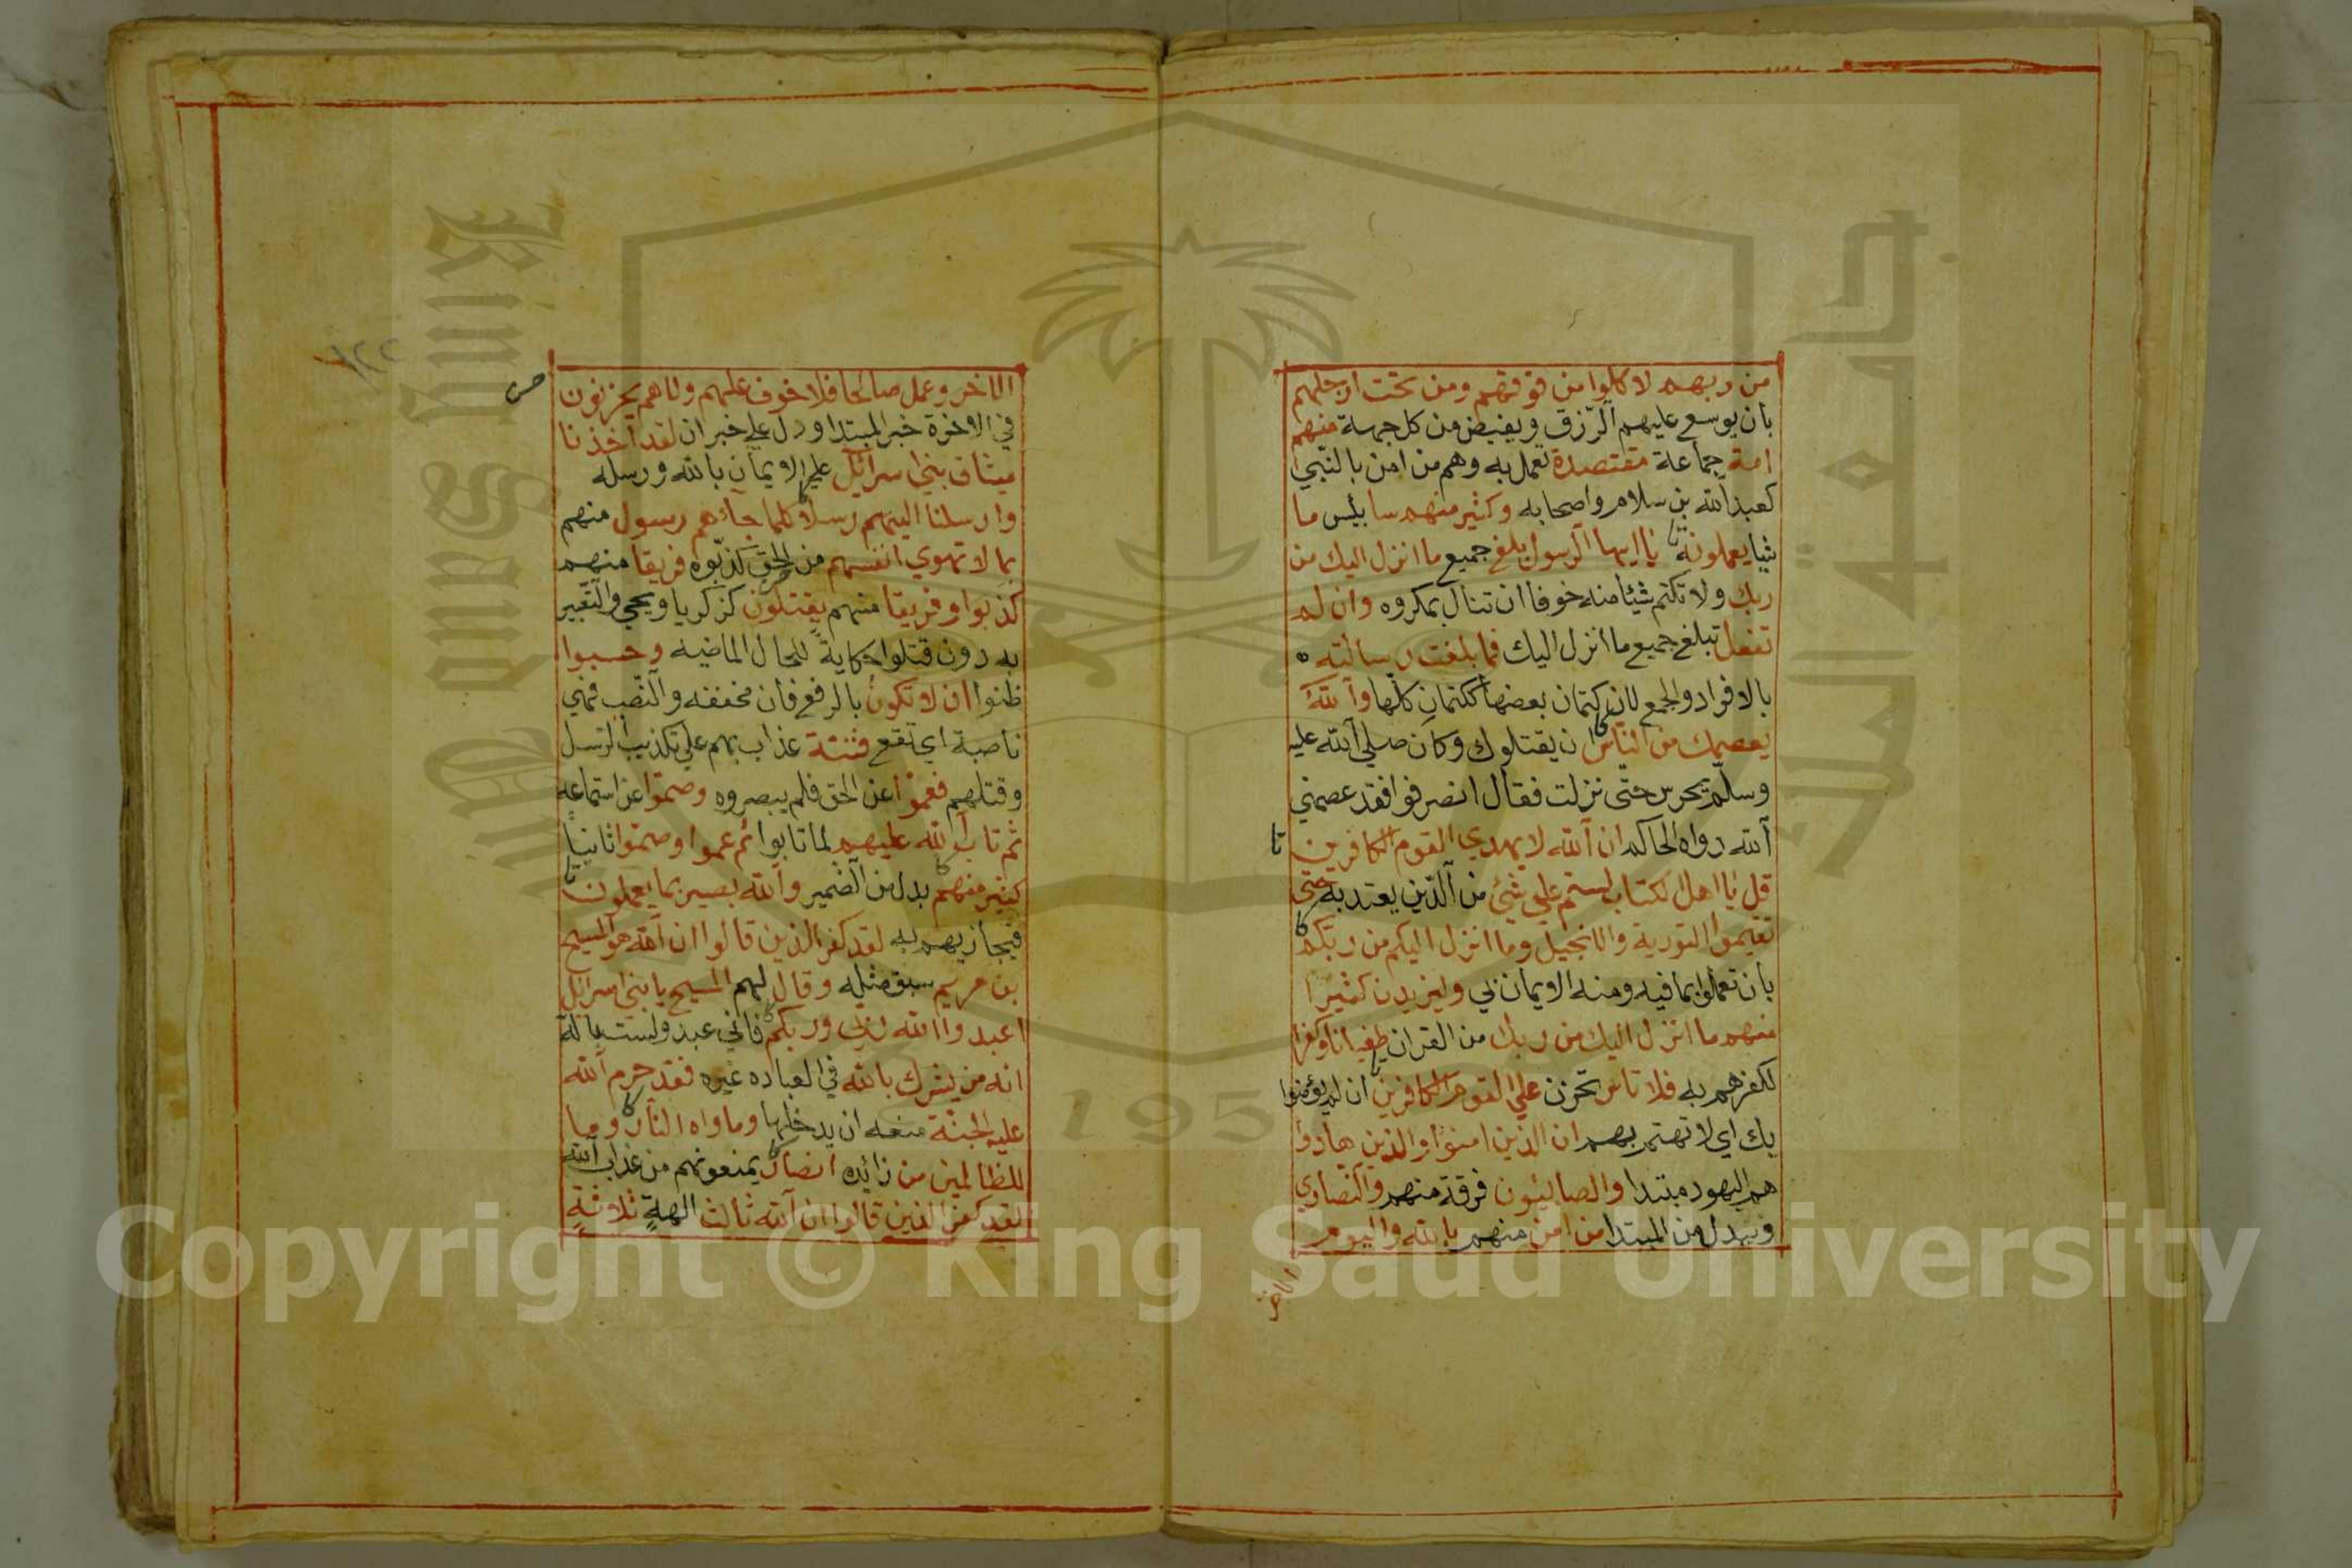 من ربهم لاكلوا من فوقهم ومن تحت ارجلهم
بان يوسع عليهم الرّزق ويفيض من كل جهة منهم
امة جماعة مقتصدة تعمل به وهم من امن بالنّبي
كعبد الله بن سلام واصحابه وكثير منهم سا بئس ما
شيا يعملونه يا ايها الرسول بلغ جميع ما انزل اليك من
ربك ولا تكتم شيئا منه خوفا ان تنال بمكروه وان لم
تفعل تبلغ جميع ما انزل اليك فما بلغت رسالته
بالافراد والجمع لان كتمان بعضها ككتمان كلّها والله
يعصمك من الناس ان يقتلوك وكان صلي الله عليه
وسلّم يحرس حتّى نزلت فقال انصرفوا فقد عصمني
الله رواه الحاكم ان الله لا يهدي القوم الكافرين
قل يا اهل لكتاب لستم علي شيئ من الدّين يعتد به حتى
تقيموا التورية والانجيل وما انزل اليكم من ربكم
بان تعملوا بما فيه ومنه الايمان بي وليزيدن كثيرا
منهم ما انزل اليك من ربك من القران طغيانا وكفرا
لكفرهم به فلا تاس تحزن علي القوم الكافرين ان لم يؤمنوا
بك اي لا تهتم بهم ان الذين امنوا والذين هادوا
هم اليهود مبتدا والصابئون فرقة منهم والنصاري
ويبدل من المبتدا من امن منهم بالله واليوم
الاخر
١٢٢
الاخر وعمل صالحا فلا خوف عليهم ولا هم يحزنون
في الاخرة خبر المبتدا ودل علي خبر ان لقد اخذنا
ميثاق بني اسرائل علي الايمان بالله ورسله
وارسلنا اليهم رسلا كلما جاءهم رسول منهم
بما لا تهوي انفسهم من الحق كذّبوه فريقا منهم
كذبوا وفريقا منهم يقتلون كزكريا ويحيي والتّعبير
به دون قتلوا حكايةً للحال الماضيه وحسبوا
ظنوا ان لا تكونُ بالرفع فان مخففه والنّصب فهي
ناصبة اي تقع فتنة عذاب بهم علي تكذيب الرسل
وقتلهم فعموا عن الحق فلم يبصروه وصمّوا عن استماعه
ثم تاب الله عليهم لما تابوا ثم عموا وصمّوا ثانيا
كثير منهم بدل من الضمير والله بصير بما يعملون
فيجازيهم به لقد كفر الذين قالوا ان الله هو المسيح
بن مريم سبق مثله وقال لهم المسيح يا بني اسرائل
اعبدوا الله ربي وربكم فاني عبد ولست باله
انه من يشرك بالله في العباده غيره فقد حرم الله
عليه الجنّة منعه ان يدخلها وماواه النار وما
للظالمين من زائده انصار يمنعونهم من عذاب الله
لقد كفر الذين قالوا ان الله ثالث الهةٍ ثلاثةٍ
Copyright © King Saud University